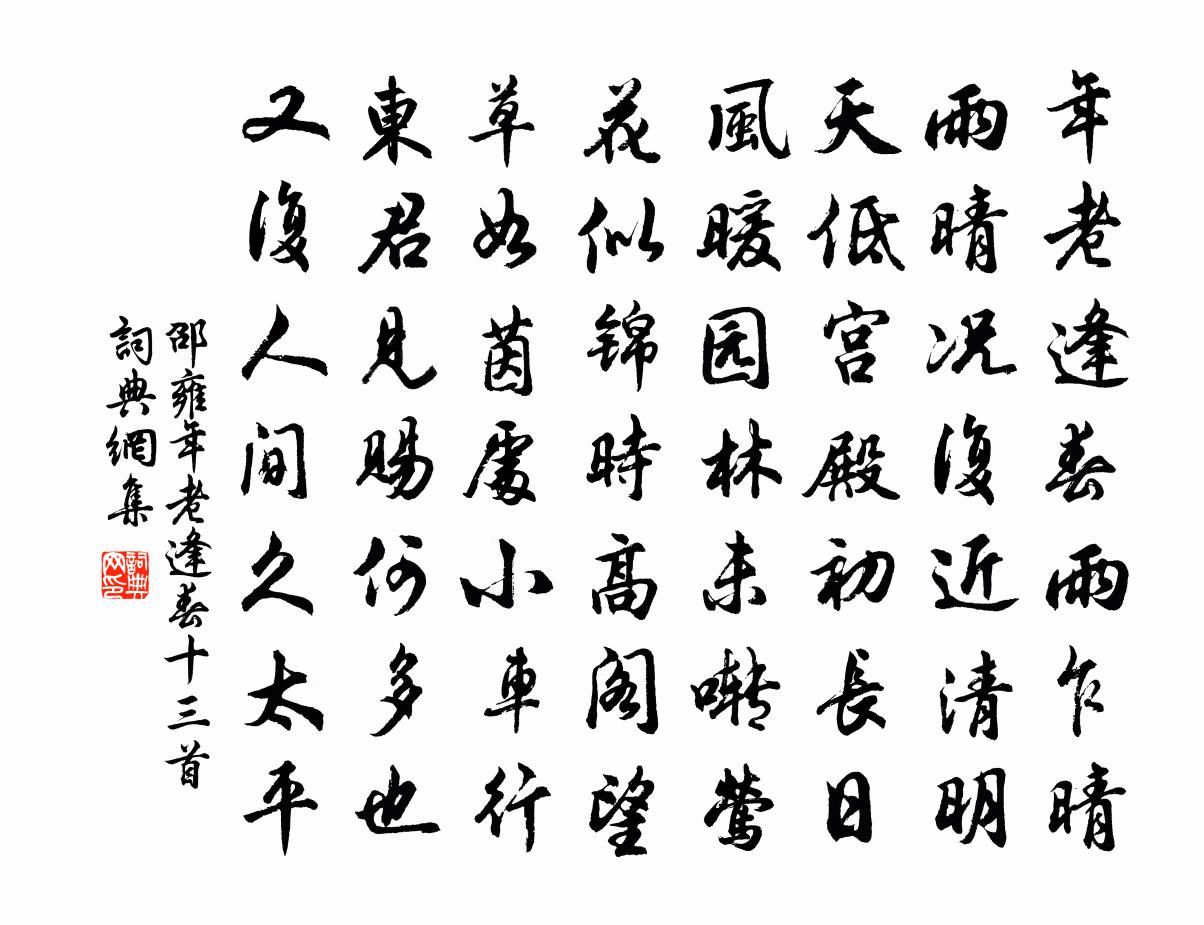 年老逢春雨乍晴
雨晴况復近清明
天低宫殿初長日
風暖园林未囀鶯
花似锦時高阁望
草如茵處小車行
東君見賜何多也
又復人间久太平
邵雍年老逢春十三首
詞典網集
詞典
网印